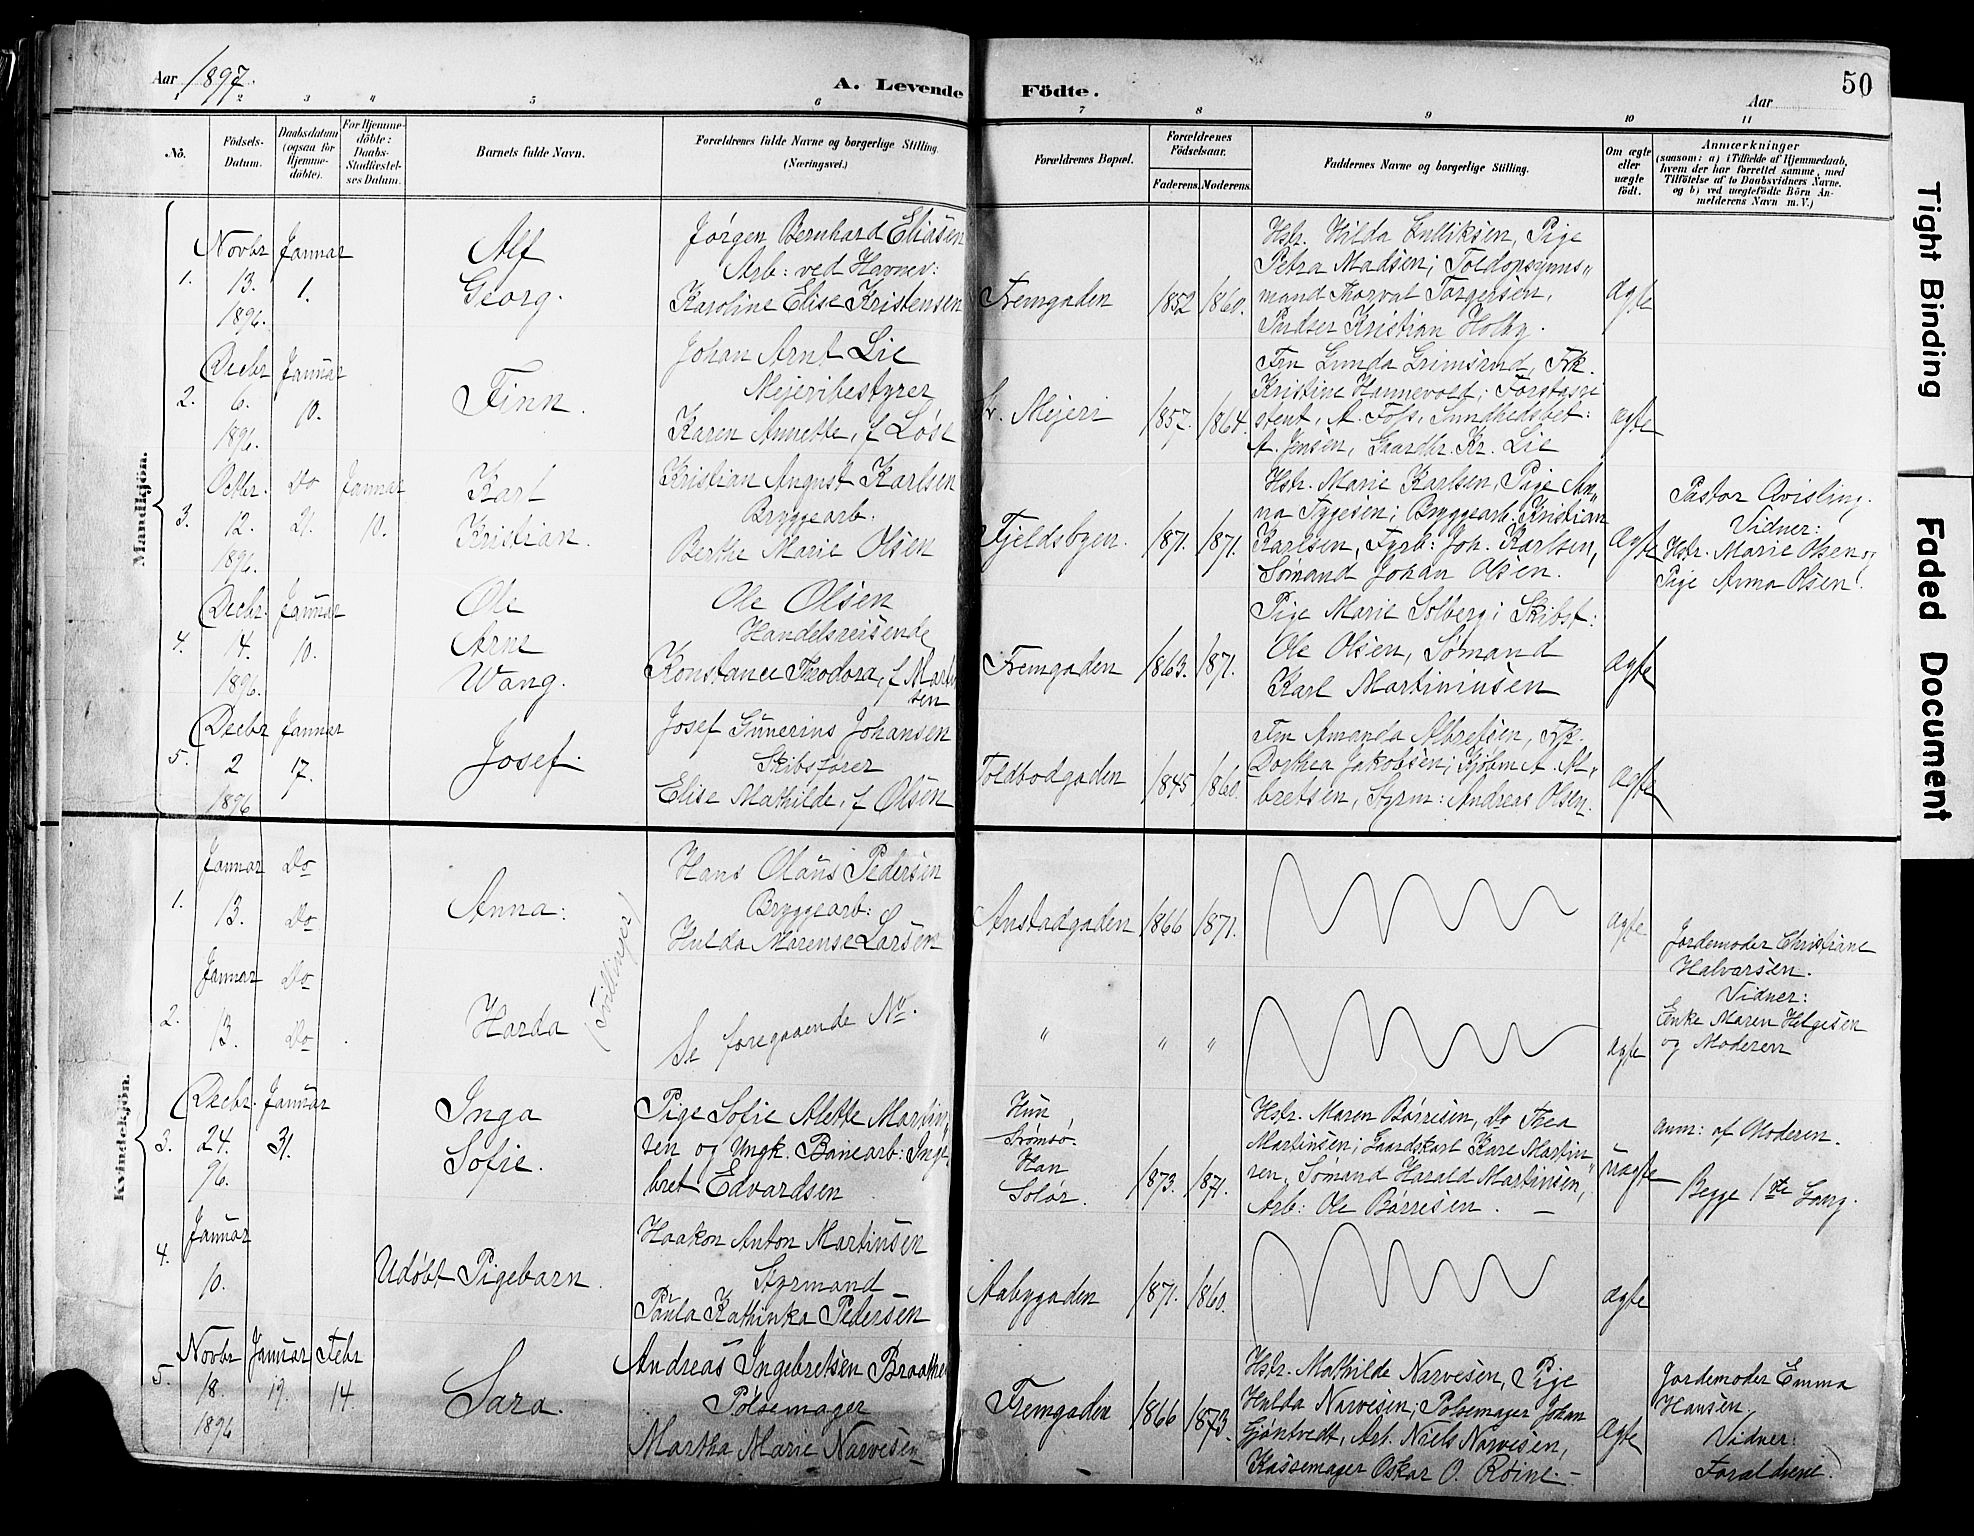 Aar 1897.
A. Levende Födte.
Aar
50
1 2 3 4 5 6 7 8 9 10 11
No.
Födsels-Datum.
Daabsdatum (ogsaa for Hjemmedöbte).
For Hjemmedöbte: Daabs-Stadfæstelses Datum.
Barnets fulde Navn.
Forældrenes fulde Navne og borgerlige Stilling (Næringsvei.)
Forældrenes Bopæl.
Forældrenes Födselsaar.
Faderens. Moderens.
Faddernes Navne og borgerlige Stilling.
Om ægte eller uægte födt.
Anmærkninger
(saasom: a) i Tilfælde af Hjemmedaab, hvem der har forrettet samme, med Tilföielse af to Daabsvidners Navne, og b) ved uægtefödte Börn Anmelderens Navn m. V.)
Mandkjön.
1.
Novbr 13. 1896.
Januar 1.
Alf
Georg.
Jørgen Bernhard Eliasen
Arb: ved Havnev:
Karoline Elise Kristensen
Fremgaden
1852
1860.
Hstr. Hilda Pige
Petra Madsen; Toldopsyns"
mand Thorvat Torgersen,
Pudser Kristian Holby.
ægte
2.
Decbr 6. 1896.
Januar 10.
Finn.
Johan Arnt Lie
Mejeribestyrer
Karen Annette, f Løse
Mejeri
1857.
1864.
Fru Gunda Grimsrud, Frk.
Kristine Hannevold; Forstassi
stent, A. Foss, Sundhedsbet:
A. Jensen, Gaardbr. Kr. Lie
ægte
3.
Octbr. 12. 1896.
Do 21.
Januar 10.
Karl
Kristian.
Kristian August Karlsen
Bryggearb.
Berthe Marie Olsen
Fjeldsbyen.
1871.
1871.
Hstr. Marie Karlsen, Pige An"
na Tygesen; Bryggearb. Kristian
Karlsen, Fyrb: Joh. Karlsen,
Sømand Johan Olsen.
ægte
Pastor Qvisling.
Vidner:
Hstr. Marie Olsen og
Pige Anna Olsen.
4.
Decbr. 14. 1896.
Januar 10.
Ole
Arne
Wang.
Ole Olsen
Handelsreisende
Konstance Theodora, f Martin
sen
Fremgaden
1863.
1871.
Pige Marie Solberg; Skibst:
Ole Olsen, Sømand
Karl Martiniusen
ægte
5.
Decbr 2 1896
Januar 17.
Josef.
Josef Gunerius Johansen
Skibsfører
Elise Mathilde, f Olsen
Toldbodgaden
1845
1860.
Fru Amanda Albretsen, Frk.
Dorthea Jakobsen; Kjøbm A. Al"
bretsen, Styrm: Andreas Olsen.
ægte
Kvindekjön.
1.
Januar 13.
Do
Do
Anna:
(Tvillinger)
Hans Olaus Pedersen
Bryggearb:
Hulda Marense Larsen
Anstadgaden
1866
1871.
ægte
Jordemoder Christiane
Halvarsen.
Vidner:
Enke Maren Helgesen
og Moderen
2.
Januar 13.
Do
Do
Harda
Se foregaaende No.
" " "
ægte
3.
Decbr. 24. 96.
Januar 31.
Inga
Sofie.
Pige Sofie Alette Martin
sen og Ungk. Banearb: Inge
bret Edvardsen
Hun
Strømsø.
Han
Solør.
1873.
1871.
Hstr. Maren Børresen, Do Thea
Martinsen; Gaardskarl Kare Martin"
sen, Sømand Harald Martinsen,
Arb: Ole Børresen. —
uægte
Anm: af Moderen.
Begge 1ste Gang.
4.
Januar 10.
Udøbt Pigebarn.
Haakon Anton Martinsen
Styrmand
Paula Kathinka Pedersen
Aabygaden
1871.
1860.
ægte
5.
Novbr 18. 1896
Januar 19.
Febr 14.
Sara.
Andreas Ingebretsen Braathen
Pølsemager
Martha Marie Narvesen
Fremgaden
1866
1873.
Hstr. Mathilde Narvesen, Pige
Hulda Narvesen; Pølsemager Johan
Gjøntvedt, Arb. Niels Narvesen,
Kassemager Oskar O. Røine. —
ægte
Jordemoder Emma
Hansen.
Vidner:
Forældrene.
Tight Binding
Faded Document